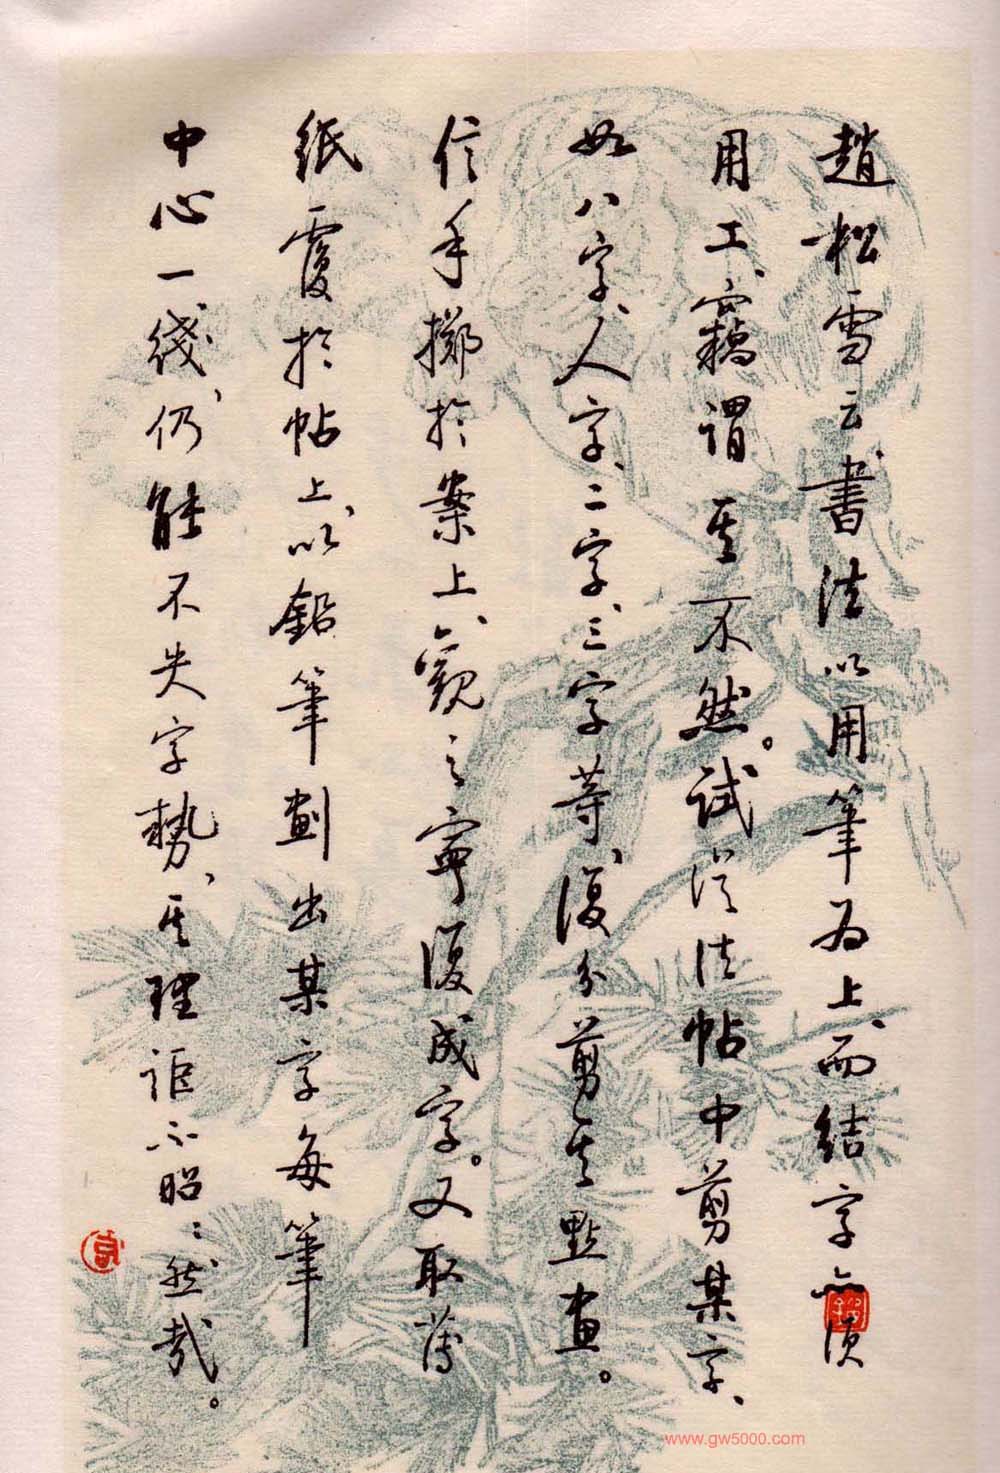 趙松雪云書法以用筆为上、而結字亦須
用工、竊謂其不然。試從法帖中剪某字、
如八字、人字、二字、三字等、復分剪其點畫。
信手擲於案上、觀之寧復成字。又取薄
紙覆於帖上、以鉛筆劃出某字每筆
中心一綫、仍能不失字勢、其理詎不昭〻然哉。
www.gw5000.com